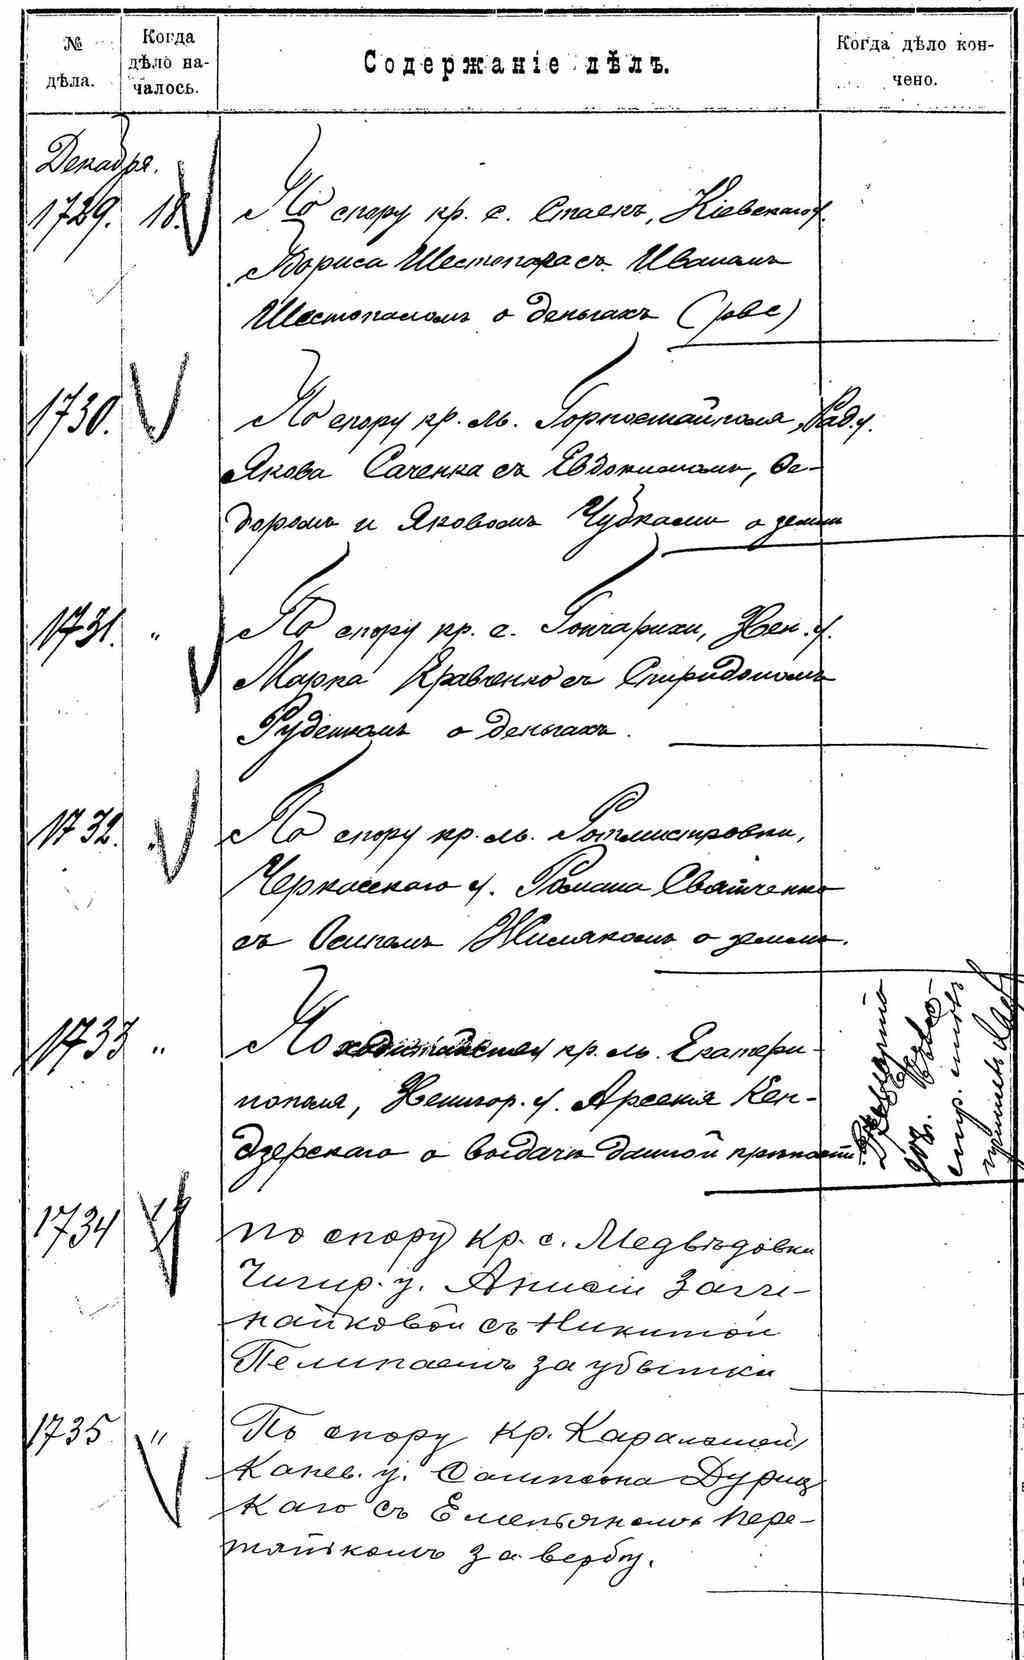 № дѣла.
Когда дѣло началось.
Содержаніе дѣлъ.
Когда дѣло кончено.
Декабря.
1729. 18. По спору кр. с. Стаекъ, Кіевскаго у.
Бориса Шестопала съ Иваномъ
Шестопаломъ о деньгахъ
1730. По спору кр. м. Горностайполя, Рад. у.
Якова Саченка съ Евдокимомъ, Ѳе-
доромъ и Яковомъ Чубками о земли
1731. " По спору кр. с. Гончарихи, Звен. у.
Марка Кравченко съ Спиридономъ
Руденкомъ о деньгахъ.
1732. " По спору кр. м. Ротмистровки,
Черкасскаго у. Романа Свитченко
съ Осипомъ Жиляком о земли.
1733 " По ходатайству кр. м. Екатери-
нополя, Звенигор. у. Арсенія Кен-
дзерскаго о выдачѣ данной крѣпости
1734 " По спору кр. с. Медвѣдовки
Чигир. у. Анисіи
съ Никитой
за убытки
1735 " По спору кр.
Канев. у. Сампсона Дуриц
каго съ Емельяномъ Пере-
тятькомъ за вербу.